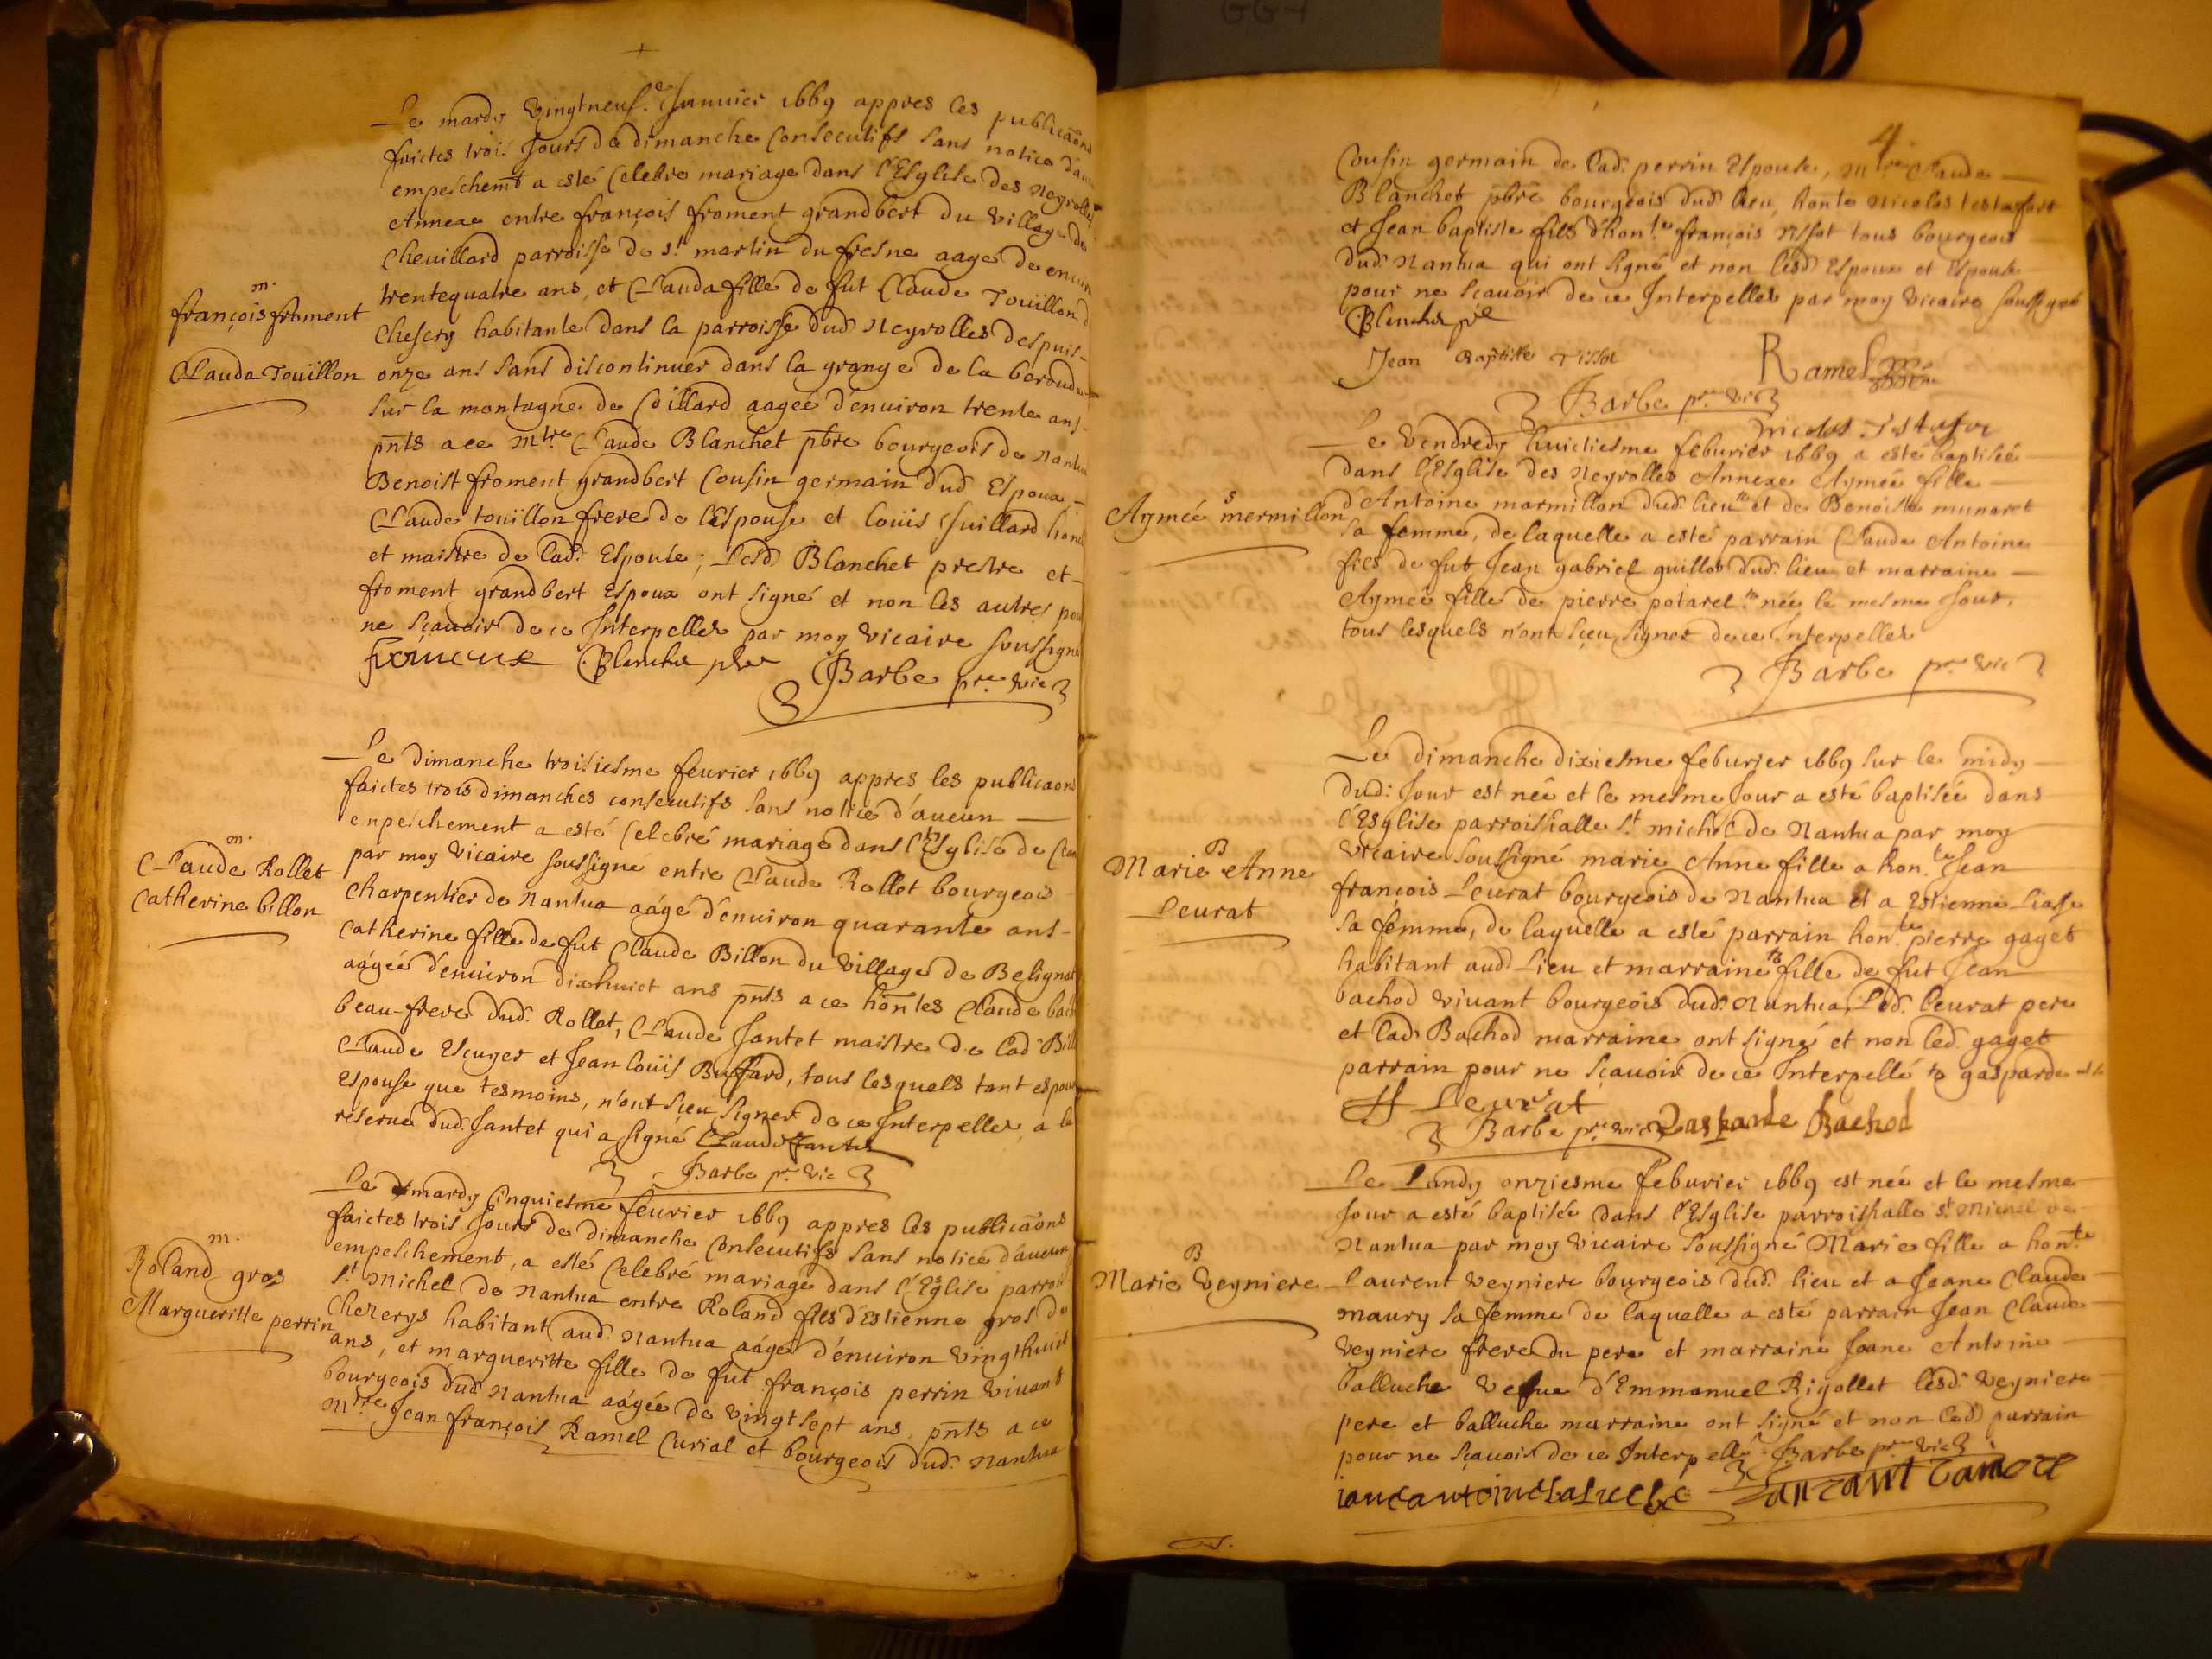 Le mardy vingtneuf.e Januier 1669 appres les publicaons
faictes trois Jours de dimanche Consecutifs sans notice d'au
empeschemt a esté Celebre mariage dans l'Esglise des Neyrolles
Annexe entre françois froment grandbert du village de
Cheuillard parroisse de st martin du fresne aagé de enuiron
trentequatre ans, et Clauda fille de fut Claude Touillon d
Chesery habitante dans la parroisse dud Neyrolles despuis-
onze ans sans discontinuer dans la grange de la beroude
sur la montagne de Coillard aagée d'enuiron trente ans-
pnts a ce mtre Claude Blanchet pbre bourgeois de nantua
Benoist froment grandbert Cousin germain dud Espoux-
Claude touillon frere de l'Espouse et Louis Juillard hon
et maistre de lad. Espouse; Lesd Blanchet prestre et-
froment grandbert Espoux ont signé et non les autres pour
ne sçauoir de ce Interpelles par moy vicaire soussigné
m.
françois froment
Clauda Touillon
Blanchet pbre Barbe pre vic
Le dimanche troisiesme feurier 1669 appres les publicaons
faictes trois dimanches consecutifs sans notice d'aucun
enpeschement a esté Celebré mariage dans l'Esglise de
par moy vicaire soussigné entre Claude Rollet bourgeois
Charpentier de Nantua aágé d'enuiron quarante ans-
Catherine fille de fut Claude Billon du village de Belignat
aágée d'enuiron dixhuict ans pnts a ce hontes Claude bach
beau-frere dud. Rollet, Claude Jantet maistre de lad Bill
Claude Escuyer et Jean Louis Buffard, tous lesquels tant espoux
Espouse que tesmoins, n'ont sçeu signer de ce Interpelles a la
reserue dud. Jantet qui a signé Claude Jantet
m.
Claude Rollet
Catherine billon
Barbe pr. vic
Le mardy Cinquiesme feurier 1669 appres les publicaons
faictes trois Jours de dimanche Consecutifs sans notice d'aucun
empeschement, a esté Celebré mariage dans l'Esglise parrois
st Michel de Nantua entre Roland fils d'Estienne gros de
Chezerys habitant aud Nantua aágé d'enuiron vingthuict
ans, et margueritte fille de fut françois perrin viuant
bourgeois dud Nantua aágée de vingt sept ans, pnts a ce
mtre Jean françois Ramel Curial et bourgeois dud. Nantua
m.
Roland gros
Margueritte perrin
4.
Cousin germain de lad. perrin Espouse, mtre Claude
Blanchet pbre bourgeois dud lieu, honte Nicolas testafort
et Jean baptiste fils d'honte françois tissot tous bourgeois
dud. Nantua qui ont signé et non lesd Espoux et Espouse
pour ne sçauoir de ce Interpelles par moy vicaire soussigné
Blanchet pre
Jean Baptiste Tissot
Ramel
Barbe pr. vic
Le vendredy huictiesme feburier 1669 a esté baptisée
dans l'Esglise des Neyrolles Annexe Aymée fille
d'Antoine marmillon dud. lieu et de Benoiste munaret
sa femme, de laquelle a esté parrain Claude Antoine
fils de fut Jean gabriel guillot dud. lieu et marraine
Aymée fille de pierre potarel née le mesme Jour.
tous lesquels n'ont sçeu signer de ce Interpelles
Aymée mermillon
Barbe pr. vic
Le dimanche dixiesme feburier 1669 sur le midy
dud: Jour est née et le mesme Jour a esté baptisée dans
l'Esglise parroishalle st michel de Nantua par moy
vicaire soussigné marie Anne fille a honte Jean
françois Leurat bourgeois de Nantua et a Estienne Liasse
sa femme, de laquelle a esté parrain honte pierre gaget
habitant aud Lieu et marraine fille de fut Jean
bachod viuant bourgeois dud. Nantua, Led. Leurat pere
et lad. Bachod marraine ont signé et non led. gaget
parrain pour ne sçauoir de ce Interpellé gasparde
B
Marie Anne
Leurat
Leurat
Barbe pr. vic Gasparde Bachod
Le Lundy onziesme feburier 1669 est née et le mesme
Jour a esté baptisée dans l'Esglise parroishalle st Michel de
Nantua par moy vicaire soussigné Marie fille a honte
Laurent veyniere bourgeois dud. lieu et a Jeane Claude
maury sa femme de laquelle a esté parrain Jean Claude
veyniere frere du pere et marraine Jeane Antoine
balluche vefue d'Emmanuel Rigollet lesd. veyniere
pere et balluche marraine ont signé et non led parrain
pour ne sçauoir de ce Interpellé Barbe pr. vic
B
Marie veyniere